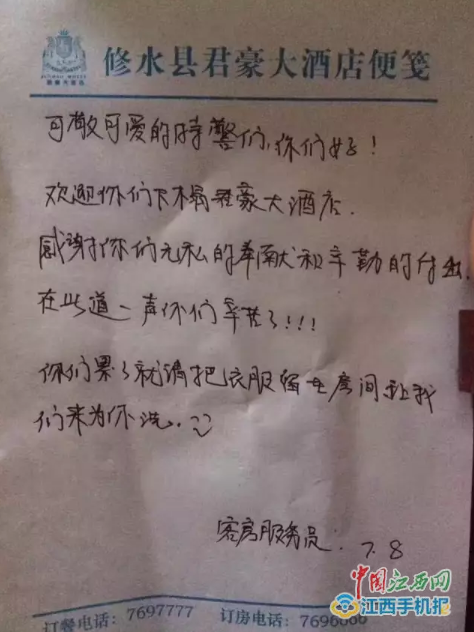 修水县君豪大酒店便笺
可敬可爱的特警们,你们好!
欢迎你们下榻君豪大酒店.
感谢你们无私的奉献和辛勤的付出.
在此道一声你们辛苦了!!!
你们累了就请把衣服留在房间让我
们来为你洗.
客房服务员. 7.8
中国江西网
江西手机报
订餐电话:7697777 订房电话:7696666